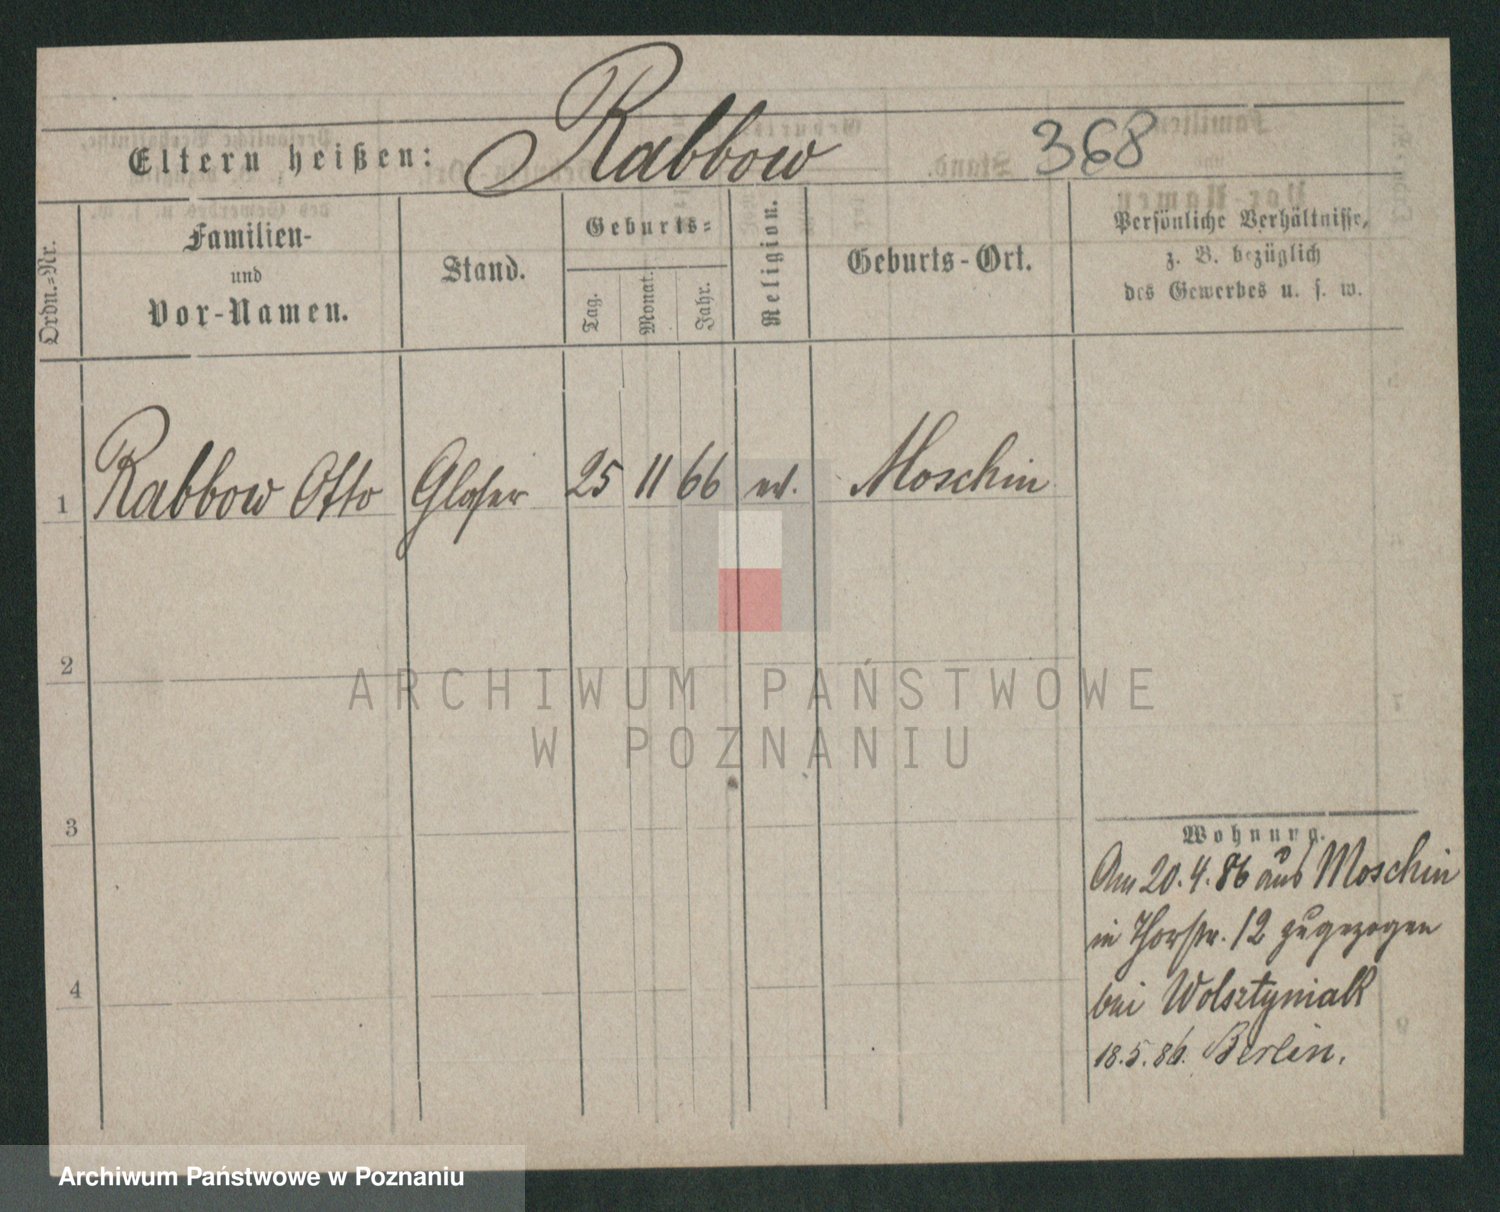 Eltern heißen: Rabbow 368
Ordn.-Nr.
Familien-
und
Vor-Namen.
Stand.
Geburts-
Tag.
Monat.
Jahr.
Religion.
Geburts-Ort.
Persönliche Verhältnisse,
z. B. bezüglich
des Gewerbes u. s. w.
1 Rabbow Otto Glaser 25 11 66 ev. Moschin
2
ARCHIWUM PAŃSTWOWE
W POZNANIU
3
Wohnung.
Am 20.4.86 aus Moschin
in Thorstr. 12 zugezogen
bei Wolsztyniak
4
18.5.86. Berlin.
Archiwum Państwowe w Poznaniu